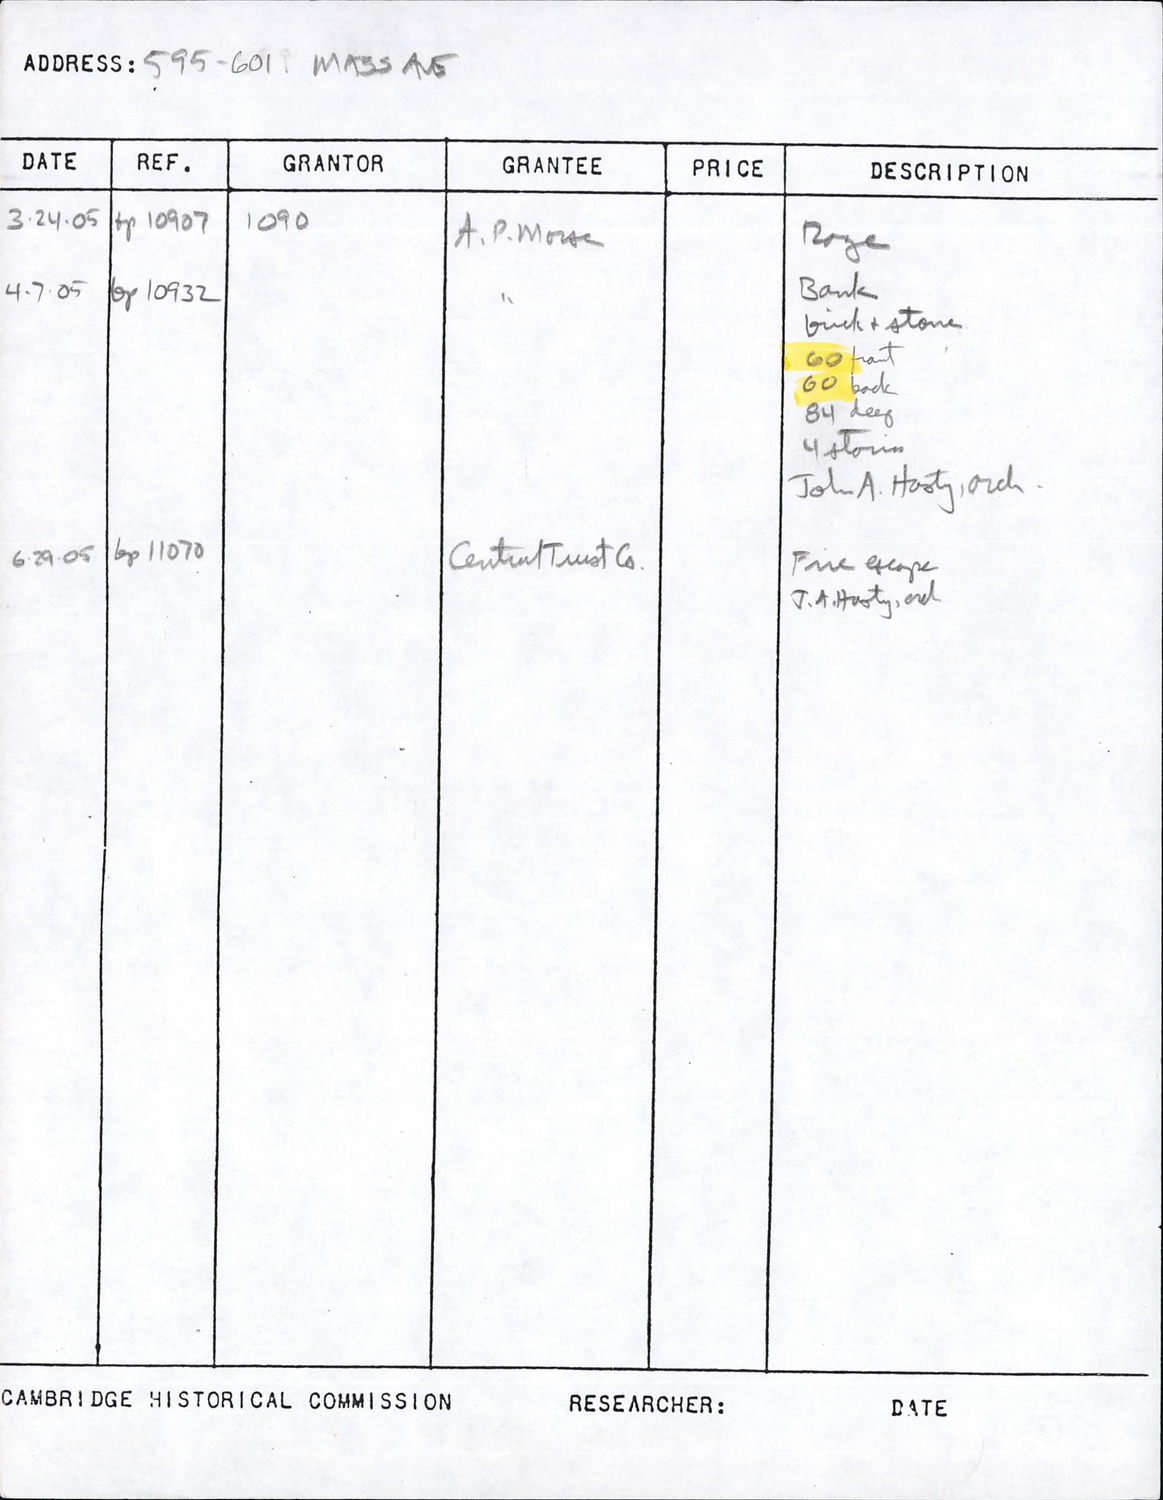 ADDRESS: 595-601 MASS AVE
DATE REF. GRANTOR GRANTEE PRICE DESCRIPTION
3·24·05 bp 10907 1090 A. P. Morse Raze
4·7·05 bp 10932 " Bank
brick + stone
60 front
60 back
84 deep
4 stories
John A. Hasty, arch.
6·29·05 bp 11070 Central Trust Co. Fire escape
J. A. Hasty, arch
CAMBRIDGE HISTORICAL COMMISSION RESEARCHER: DATE